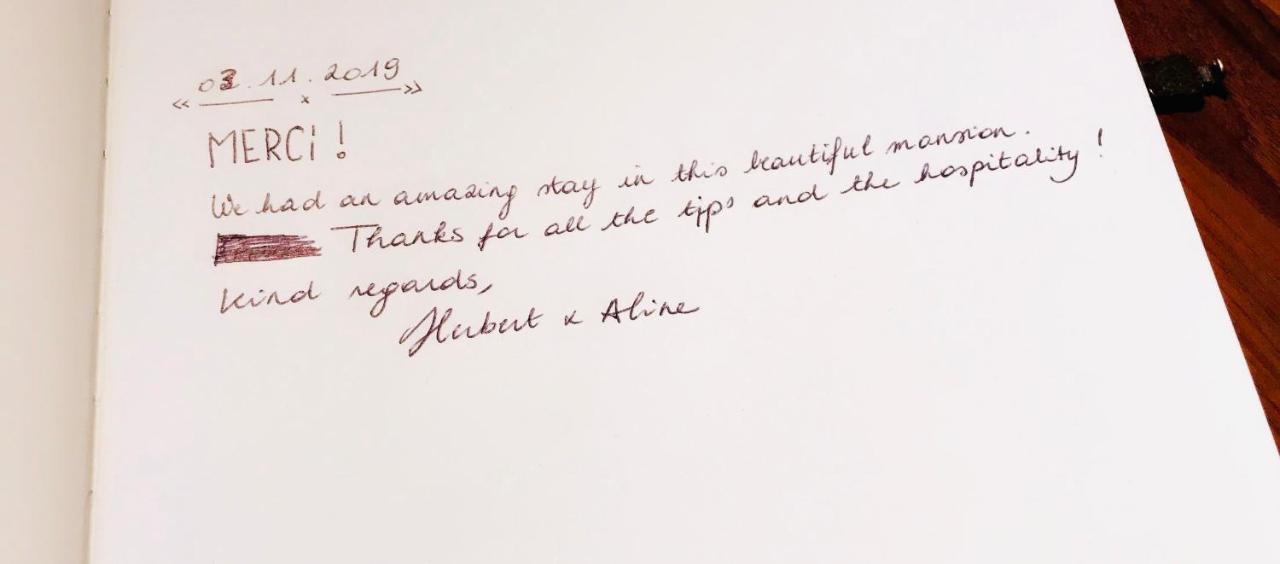 03.11.2019
MERCI !
We had an amazing stay in this beautiful mansion.
Thanks for all the tips and the hospitality !
Kind regards,
Herbert x Aline